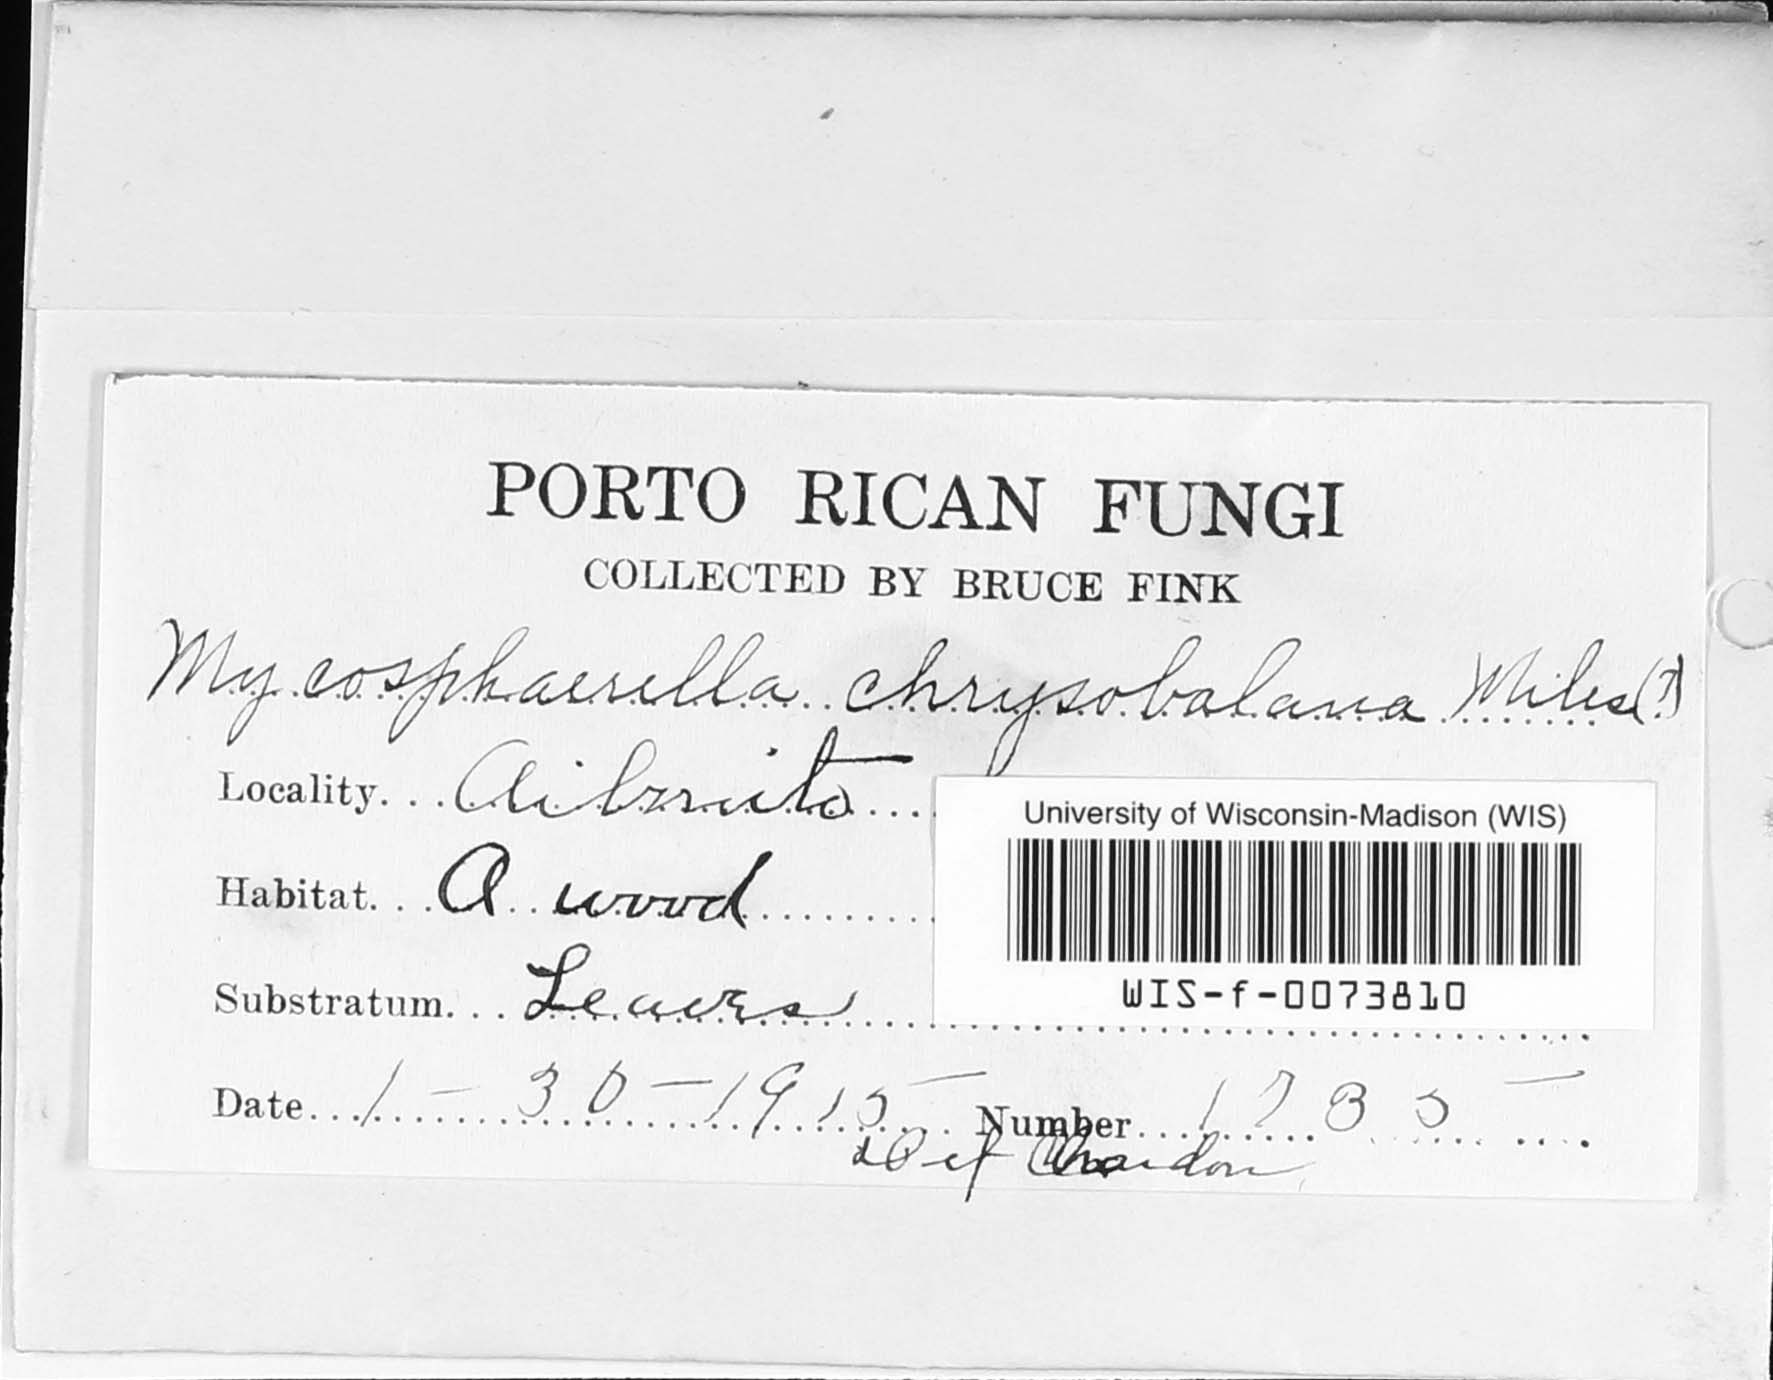 PORTO RICAN FUNGI
COLLECTED BY BRUCE FINK
Mycosphaerella chrysobalana Miles(?)
Locality... Aibonito...
University of Wisconsin-Madison (WIS)
Habitat... A wood
Substratum... Leaves
WIS-f-0073810
Date... 1-30-1915 Number... 1785
Det Chardon